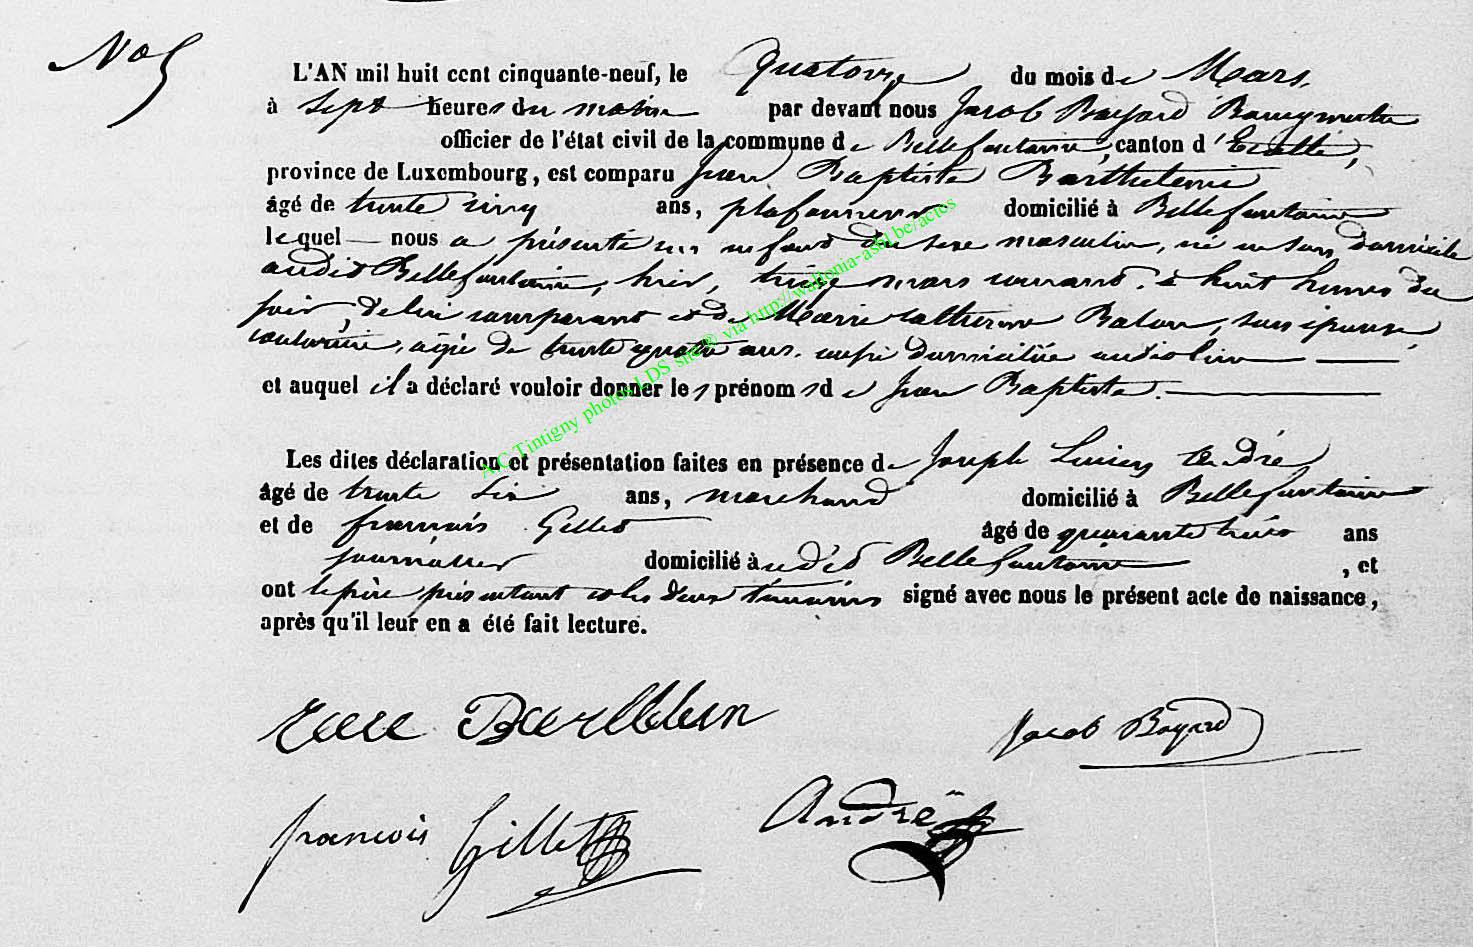 No 5
L'AN mil huit cent cinquante-neuf, le Quatorze du mois de Mars,
à Sept heures du matin par devant nous Jacob Bayard Bourgmestre
officier de l'état civil de la commune de Bellefontaine, canton d'Etalle,
province de Luxembourg, est comparu Jean Baptiste Barthelemi
âgé de trente cinq ans, plafonneur domicilié à Bellefontaine
lequel nous a présenté un enfant du sexe masculin, né en son domicile
audit Bellefontaine, hier, treize mars courant, à huit heures du
soir, de lui comparant et de Marie Catherine Balon, son épouse,
couturière, agée de trente quatre ans, aussi domiciliée audit lieu
et auquel il a déclaré vouloir donner les prénoms de Jean Baptiste.
Les dites déclaration et présentation faites en présence de Joseph Lucien André
âgé de trente six ans, marchand domicilié à Bellefontaine
et de françois Gillet âgé de quarante trois ans
journalier domicilié audit Bellefontaine, et
ont le père présentant et les deux témoins signé avec nous le présent acte de naissance,
après qu'il leur en a été fait lecture.
Jacob Bayard
françois Gillet
André
A.C Tintigny photos LDS site® via http://wallonia-asbl.be/actes